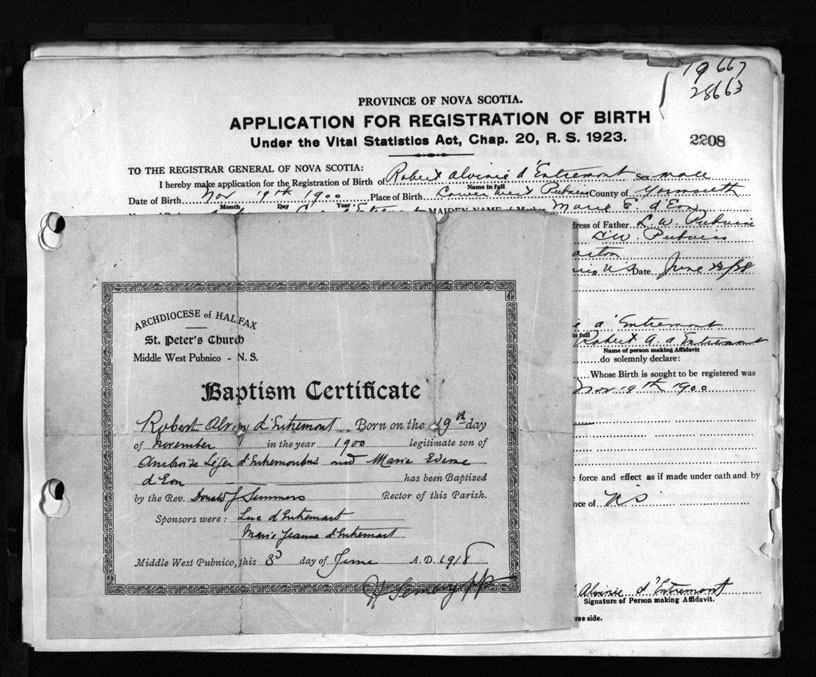 19667
28663
PROVINCE OF NOVA SCOTIA.
APPLICATION FOR REGISTRATION OF BIRTH
Under the Vital Statistics Act, Chap. 20, R. S. 1923.
2208
TO THE REGISTRAR GENERAL OF NOVA SCOTIA:
I hereby make application for the Registration of Birth of Robert Alvinie d'Entremont Sex male
Name in full
Date of Birth Nov 19th 1900 Place of Birth Lower West Pubnico County of Yarmouth
Month Day Year
MAIDEN NAME Marie E. d'Eon
dress of Father L. W. Pubnico
L.W. Pubnico
Date June 22/38
d'Entremont
in full
Robert A. d'Entremont
Name of person making Affidavit
do solemnly declare:
Whose Birth is sought to be registered was
Nov 19th 1900
force and effect as if made under oath and by
nce of NS
Alvinie d'Entremont
Signature of Person making Affidavit.
rse side.
ARCHDIOCESE of HALIFAX
St. Peter's Church
Middle West Pubnico - N. S.
Baptism Certificate
Robert Alviny d'Entremont Born on the 19th day
of November in the year 1900 legitimate son of
Ambroise Léger d'Entremont and Marie Edème
d'Eon has been Baptized
by the Rev. Donald J Simmons Rector of this Parish.
Sponsors were: Luc d'Entremont
Marie Jeanne d'Entremont
Middle West Pubnico, this 8 day of June A.D. 1918